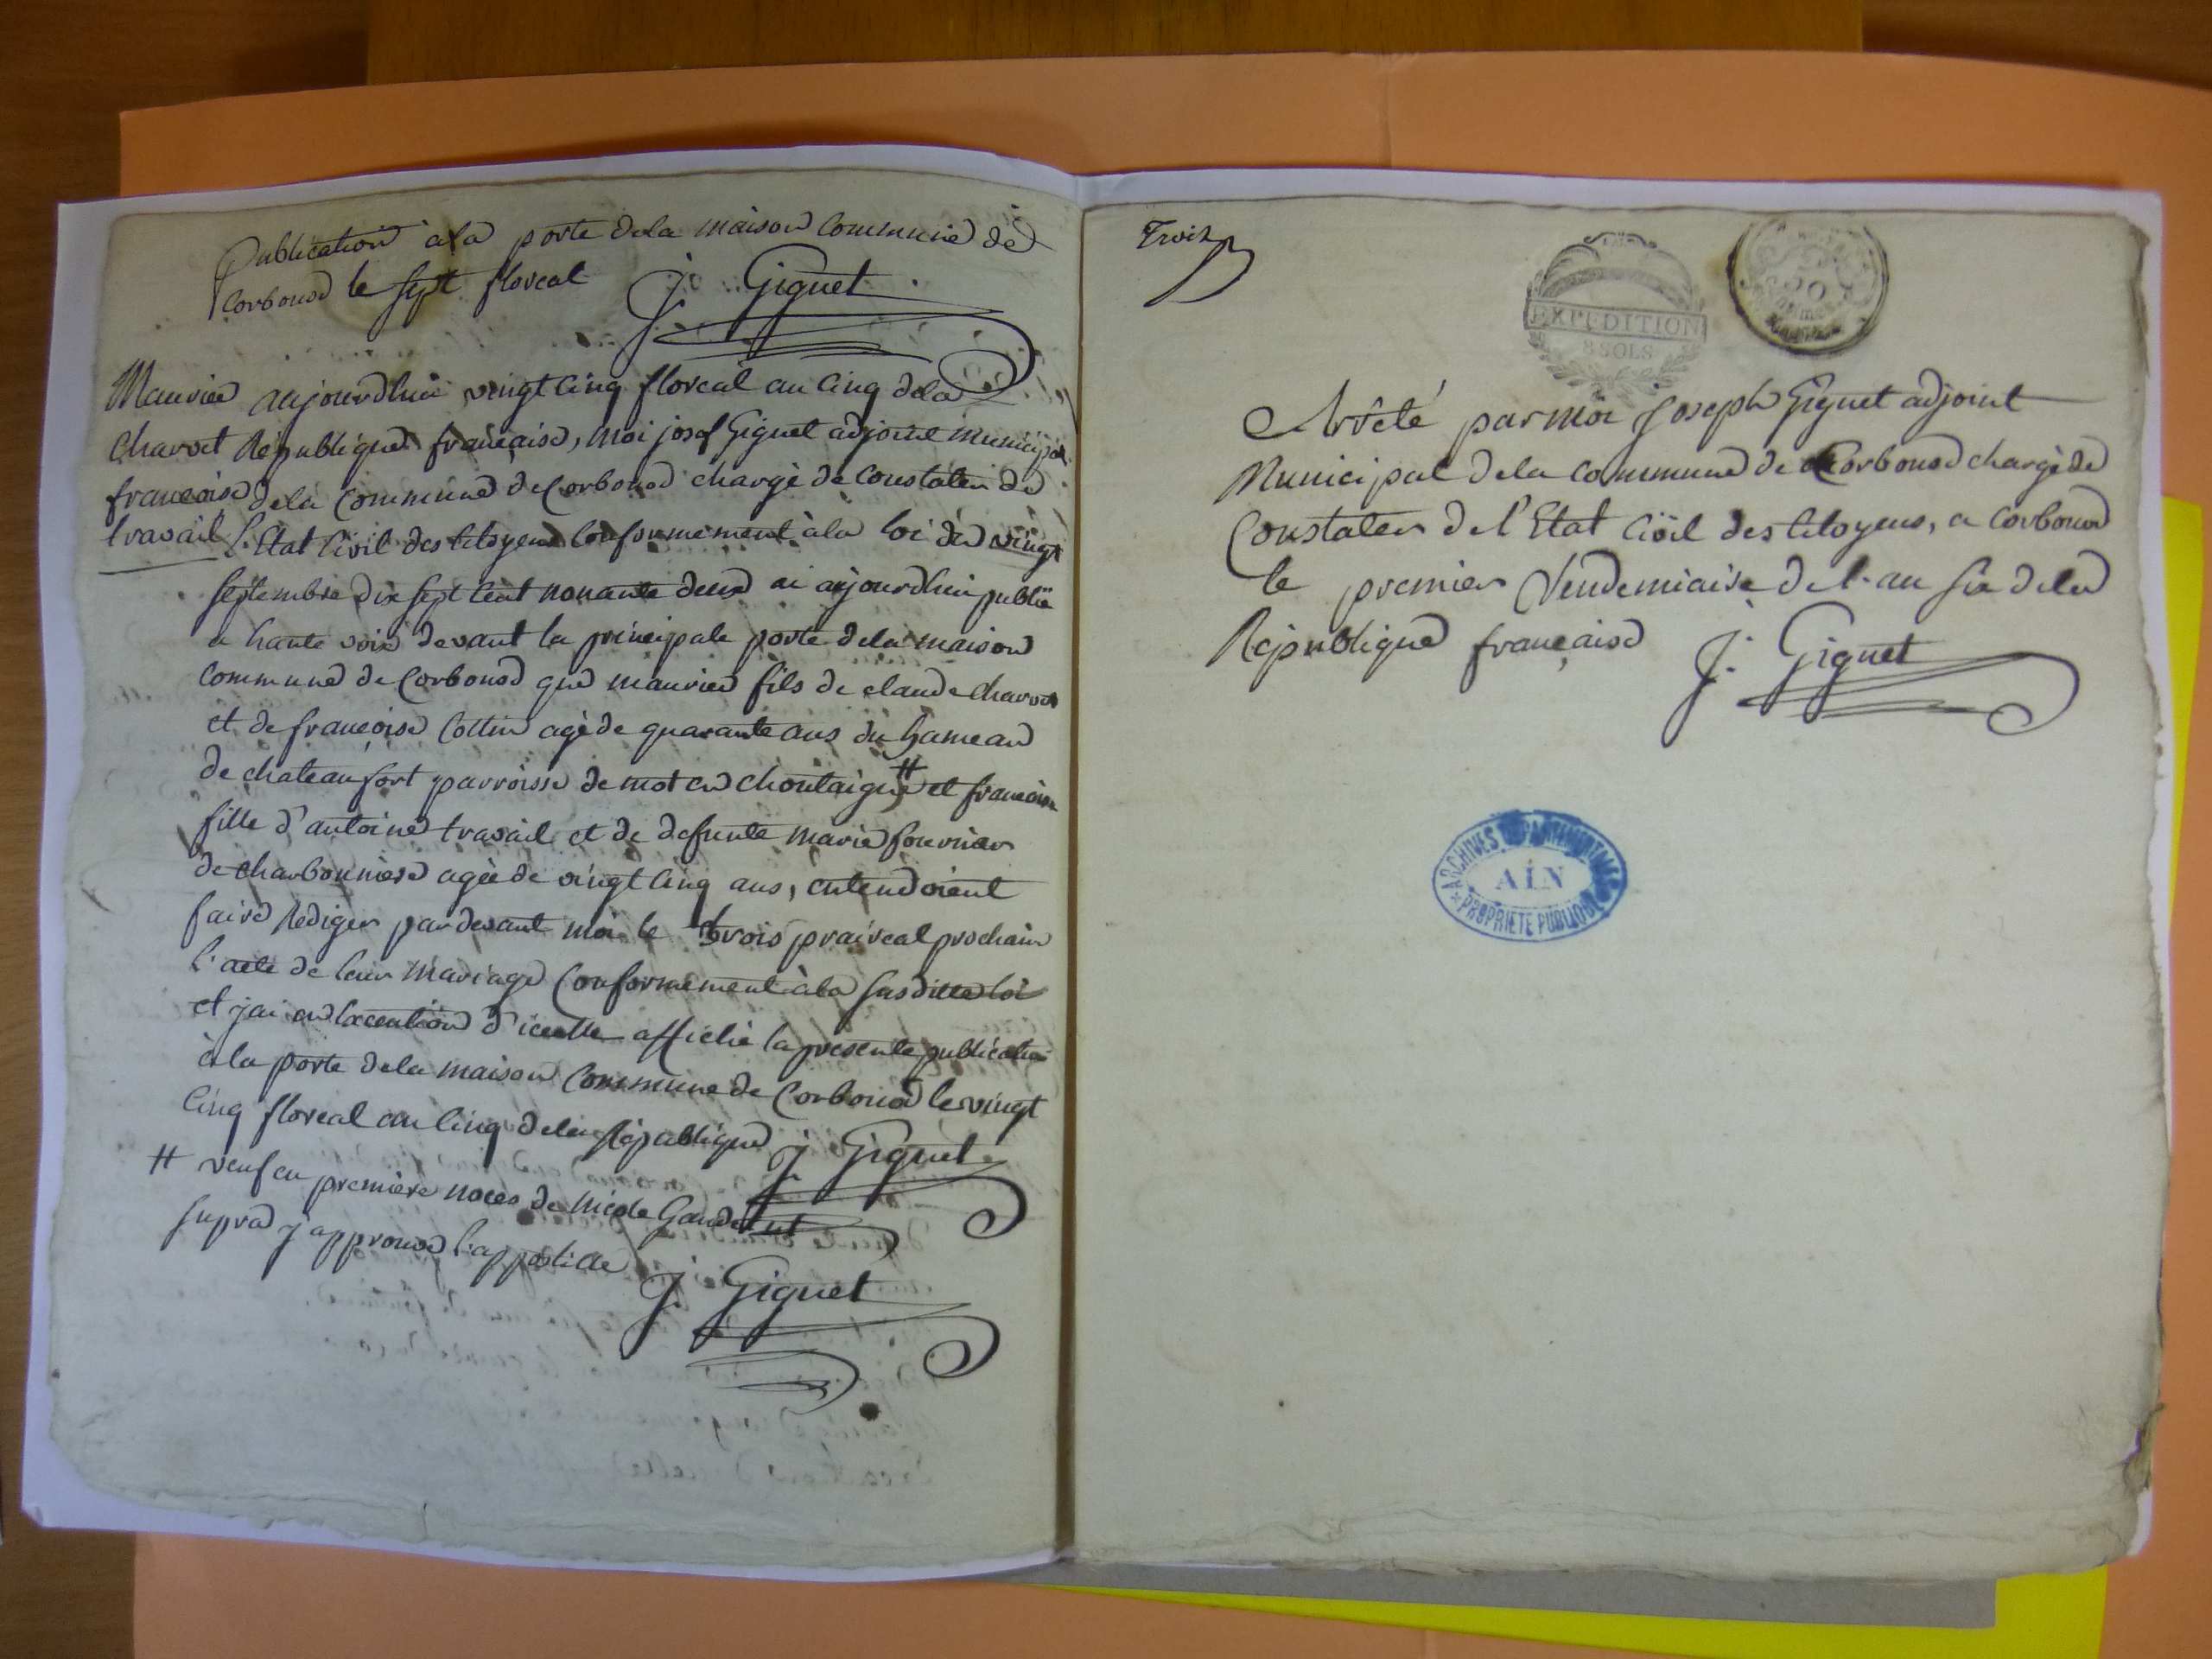 Publication à la porte dela maison commune de
Corbonod le sept floreal J. Giguet
Maurice aujourdhui vingt cinq floreal an cinq dela
Charvet République française, moi josef Giguet adjoint municipal
francoise dela commune de Corbonod chargé de constater de
travail l'Etat Civil des citoyens conformement à la loi du vingt
septembre dix sept cent nonante deux ai aujourdhui publié
a haute voix devant la principale porte dela maison
commune de Corbonod que maurice fils de claude charvet
et de françoise Collin agé de quarante ans du hameau
de chateaufort parroisse de mot en choutaigne # et françoise
fille d'antoine travail et de defunte marie fournier
de charbonniere agée de vingt cinq ans, entendoient
faire rediger pardevant moi le trois praireal prochain
l'acte de leur mariage conformement à la susditte loi
et jai en lexecution d'icelle affiché la presente publication
à la porte dela maison commune de Corbonod le vingt
cinq floreal an cinq dela République J. Giguet
# veuf en premiere noces de nicole ut
supra j'approuve l'appostille
J. Giguet
Trois
EXPEDITION
8 SOLS
20
Arrêté par moi Joseph Giguet adjoint
Municipal dela commune de Corbonod chargé de
Constater de l'Etat Civil des citoyens, a Corbonod
le premier Vendemiaire de l'an six dela
République française J. Giguet
ARCHIVES DEPARTEMENTALES
AIN
PROPRIETE PUBLIQUE